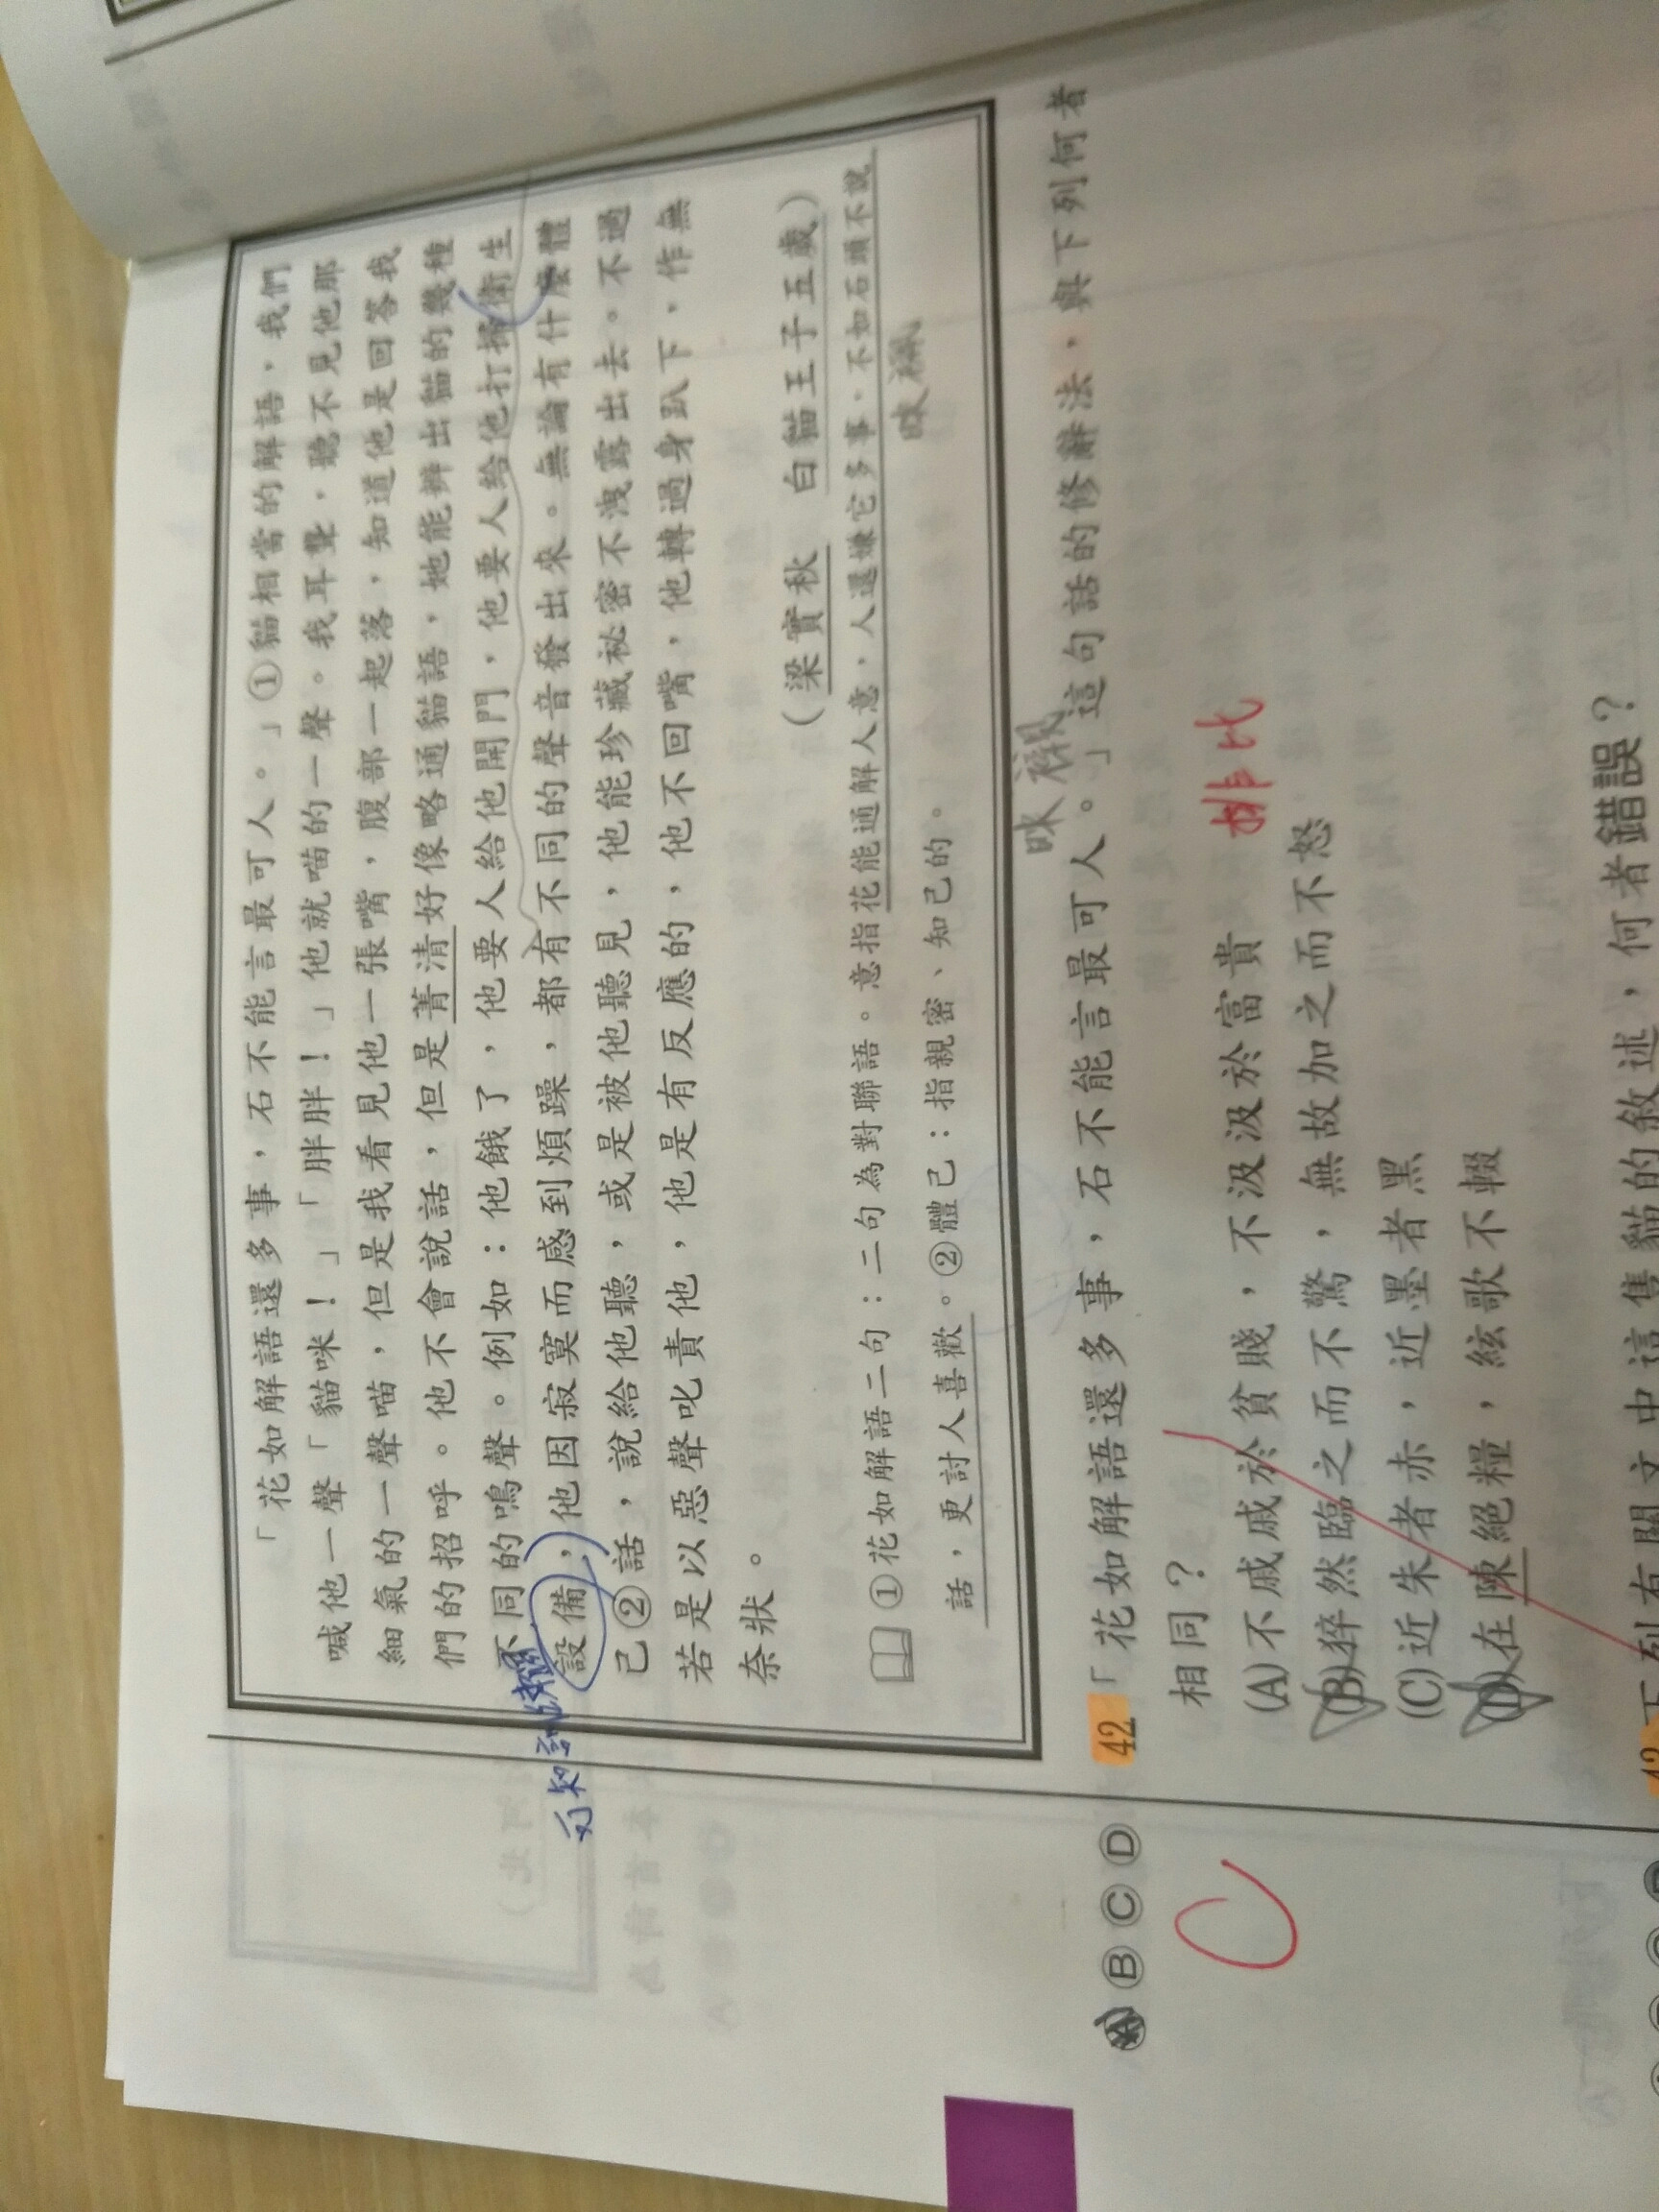 「花如解語還多事，石不能言最可人。」①貓相當的解語，我們
喊他一聲「貓咪！」「胖胖！」他就喵的一聲。我耳聾，聽不見他那
細氣的一聲喵，但是我看見他一張嘴，腹部一起落，知道他是回答我
們的招呼。他不會說話，但是菁清好像略通貓語，她能辨出貓的幾種
不同的鳴聲。例如：他餓了，他要人給他開門，他要人給他打掃衛生
設備，他因寂寞而感到煩躁，都有不同的聲音發出來。無論有什麼體
己②話，說給他聽，或是被他聽見，他能珍藏祕密不洩露出去。不過
若是以惡聲叱責他，他是有反應的，他不回嘴，他轉過身趴下，作無
奈狀。
（梁實秋 白貓王子五歲）
①花如解語二句：二句為對聯語。意指花能通解人意，人還嫌它多事，不如石頭不說
話，更討人喜歡。②體己：指親密、知己的。
映襯
映襯
42「花如解語還多事，石不能言最可人。」這句話的修辭法，與下列何者
相同？
(A)不戚戚於貧賤，不汲汲於富貴
排比
(B)猝然臨之而不驚，無故加之而不怒
(C)近朱者赤，近墨者黑
(D)在陳絕糧，絃歌不輟
Ⓐ Ⓑ Ⓒ Ⓓ
C
下列有關文中這隻貓的敘述，何者錯誤？